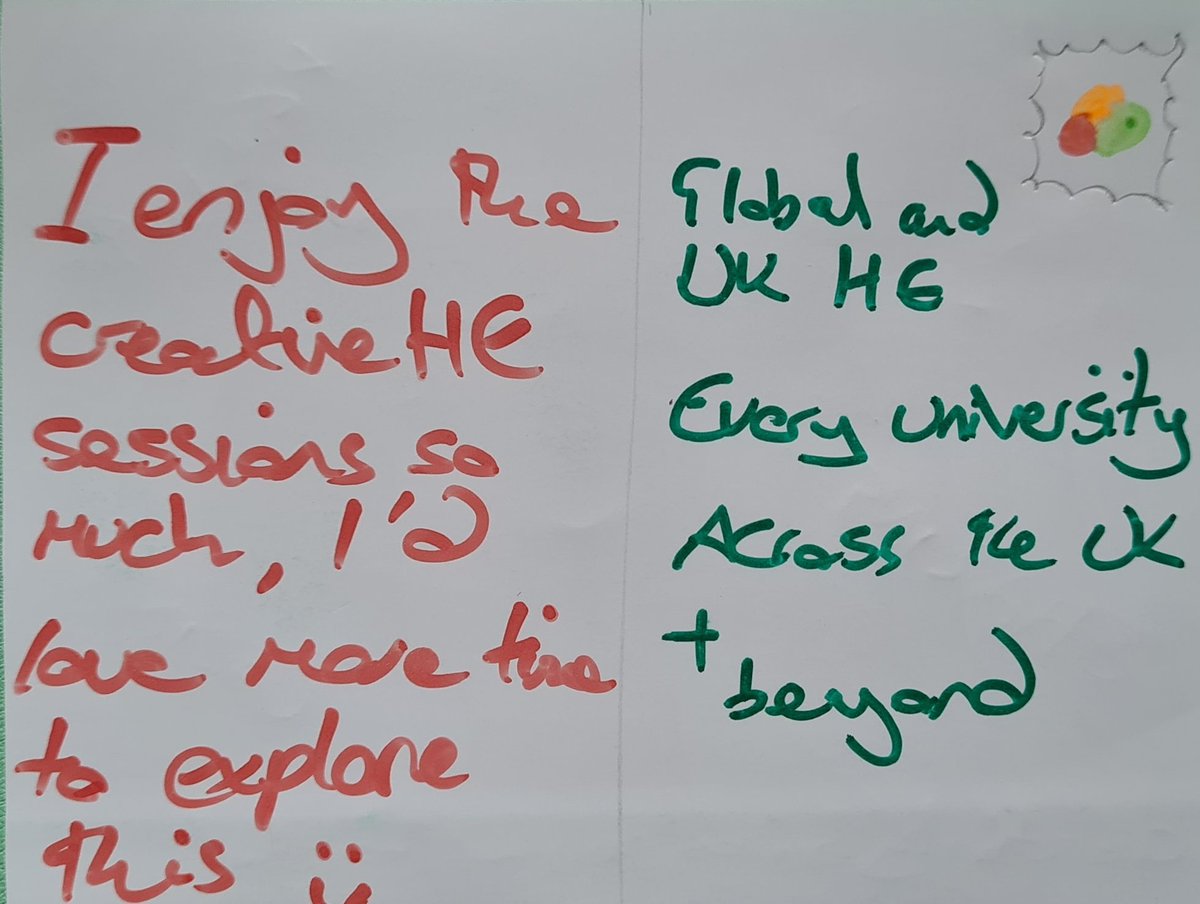 I enjoy the
creativeHE
sessions so
much, I'd
love more time
to explore
this :)
Global and
UK HE
Every university
Across the UK
+ beyond